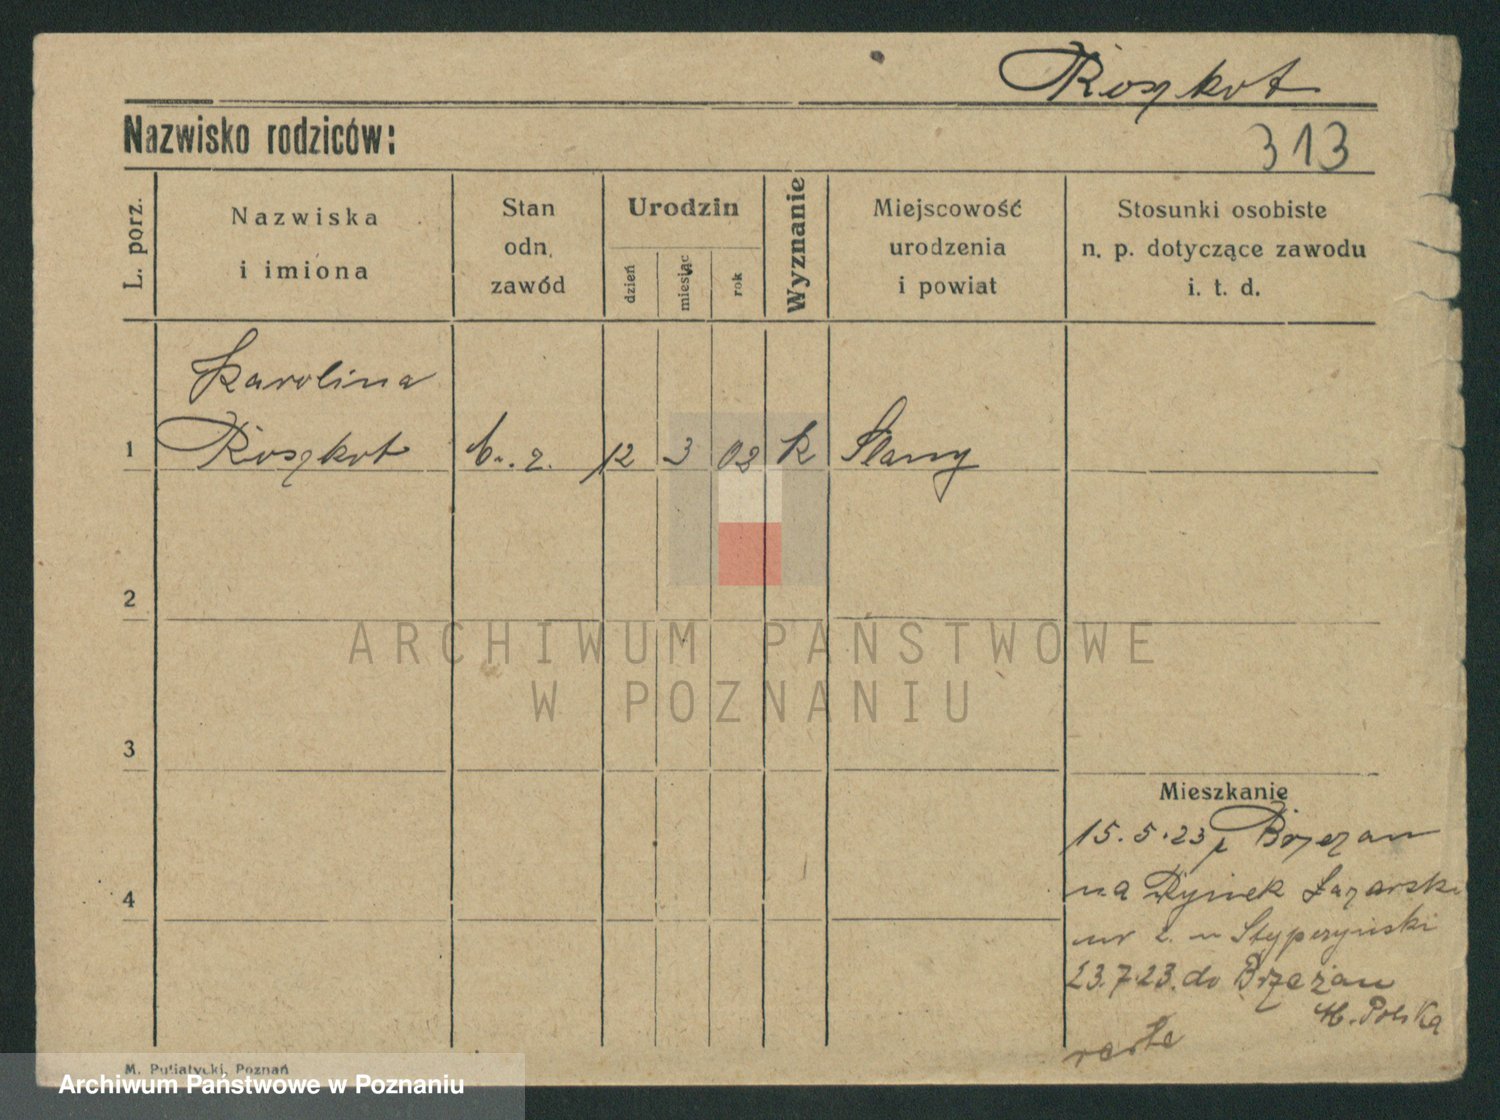 Roszkot
Nazwisko rodziców:
313
L. porz.
Nazwiska
i imiona
Stan
odn.
zawód
Urodzin
dzień
miesiąc
rok
Wyznanie
Miejscowość
urodzenia
i powiat
Stosunki osobiste
n. p. dotyczące zawodu
i. t. d.
Karolina
1 Roszkot 12 3 02 k
2
ARCHIWUM PAŃSTWOWE
W POZNANIU
3
Mieszkanie
15.5.23 z Brzezan
4
na Rynek Łazarski
nr 2. u Stypczyński
23.7.23. do Brzeżan
M. Polska
M. Putiatycki, Poznań
Archiwum Państwowe w Poznaniu